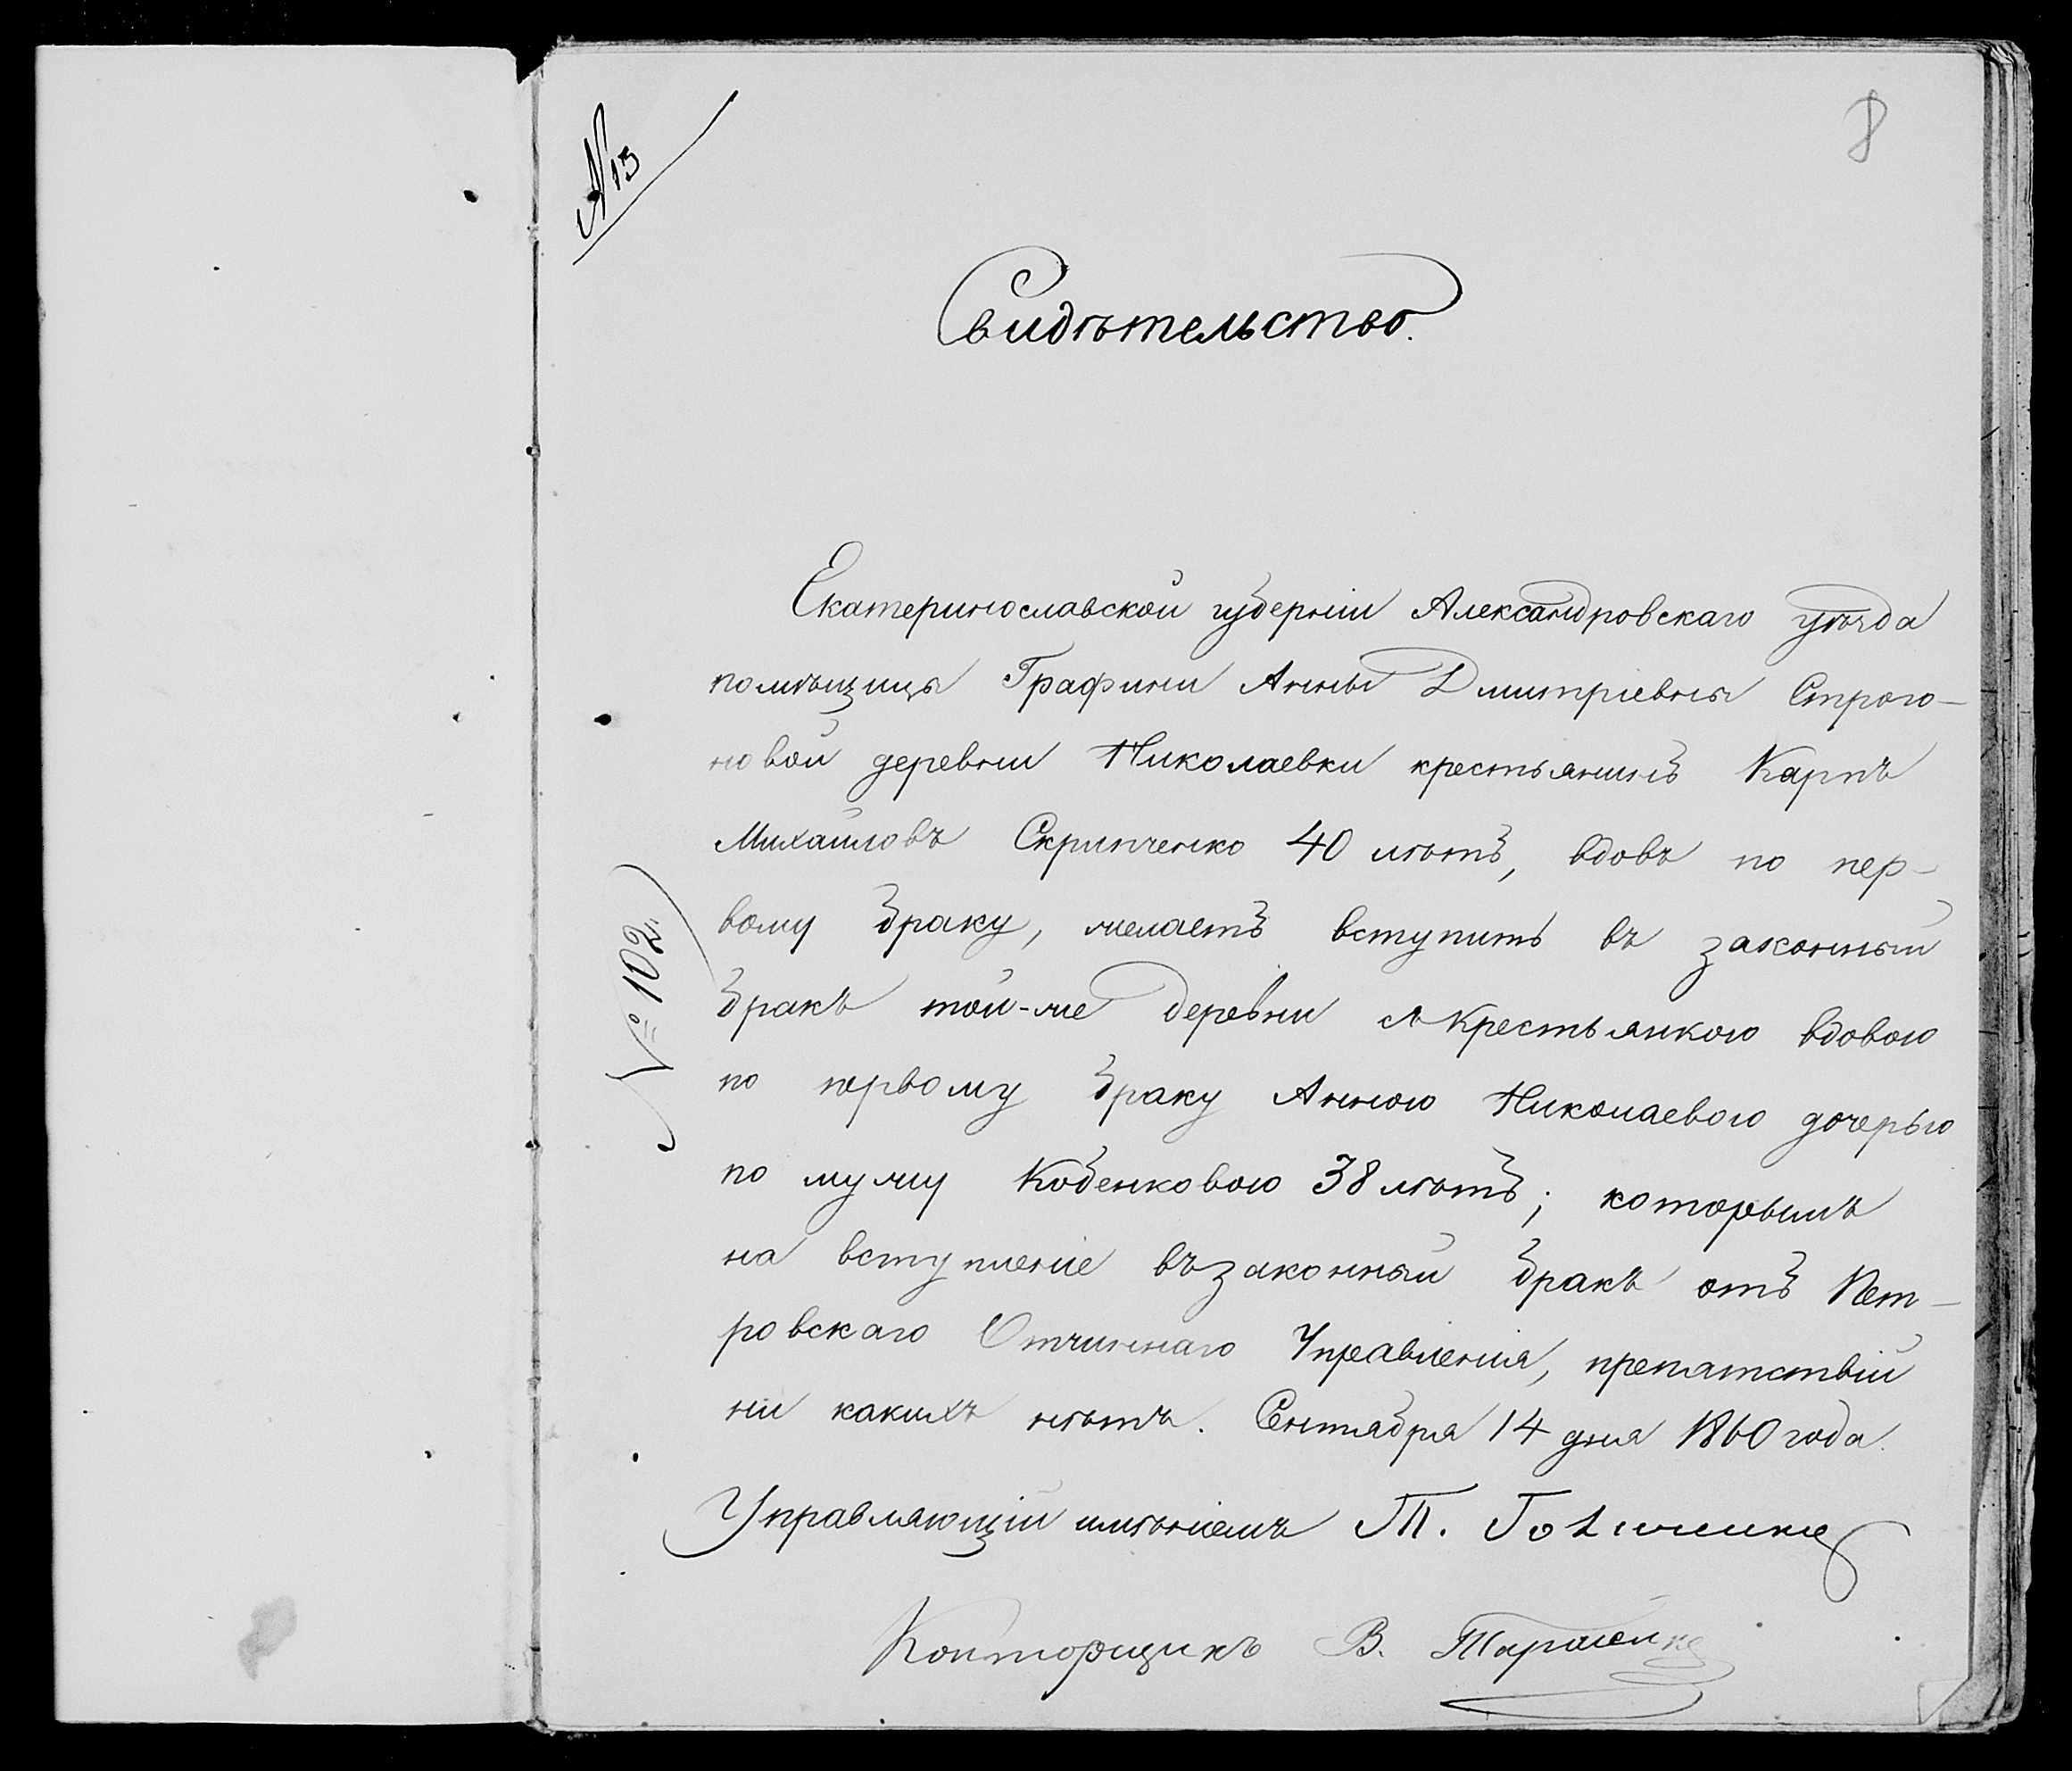 № 13
8
Свидѣтельство.
Екатеринославской губерніи Александровскаго уѣзда
помѣщицы Графини Анны Дмитріевны Строго-
новой деревни Николаевки крестьянинъ Карпъ
Михайловъ Скрипченко 40 лѣтъ, вдовъ по пер-
вому браку, желаетъ вступить въ законный
бракъ той-же деревни съ крестьянкою вдовою
по первому браку Анною Николаевою дочерью
по мужу Кобенковою 38 лѣтъ; которымъ
на вступленіе въ законный бракъ отъ Пет-
ровскаго Отчиннаго Управленія, препятствій
ни какихъ нѣтъ. Сентября 14 дня 1860 года.
№ 102
Управляющій имѣніемъ Т.
Конторщикъ В.